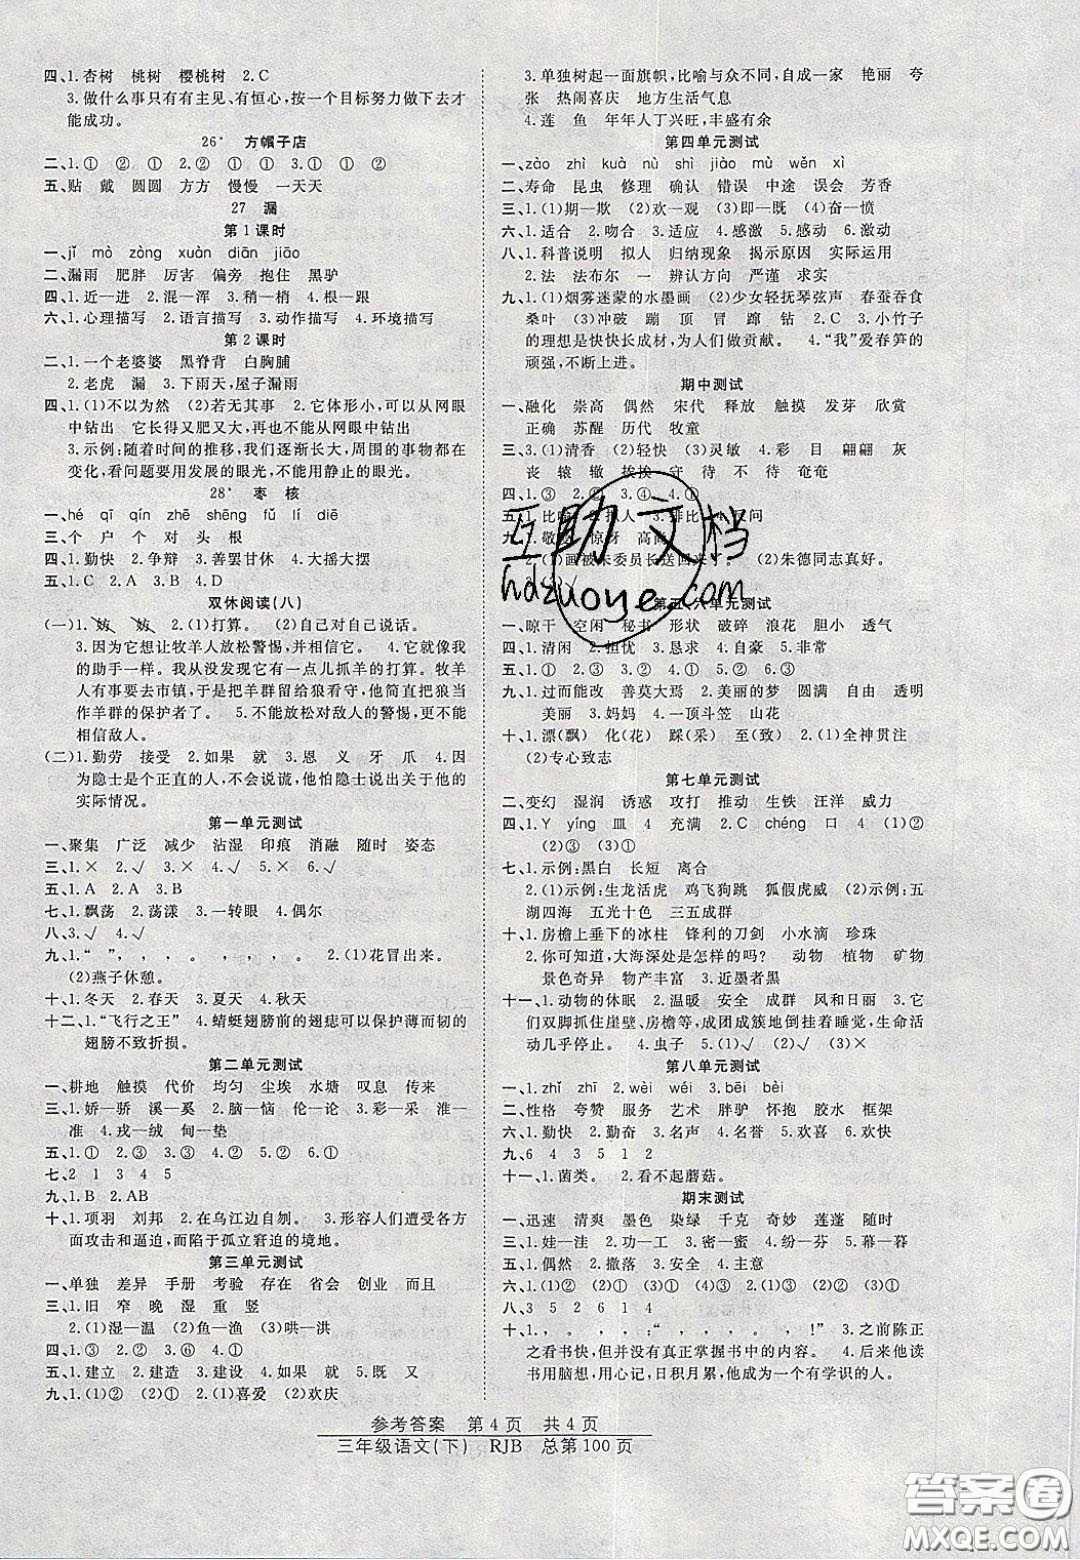 四、1.杏树 桃树 樱桃树 2.C
3.做什么事只有有主见、有恒心,按一个目标努力做下去才
能成功。
26* 方帽子店
二、1.① ② ② 2.① ① 3.① ① ②
五、贴 戴 圆圆 方方 慢慢 一天天
27 漏
第1课时
一、jǐ mò zòng xuàn diān jiāo
二、漏雨 肥胖 厉害 偏旁 抱住 黑驴
四、1.近—进 2.混—浑 3.稍—梢 4.根—跟
六、1.心理描写 2.语言描写 3.动作描写 4.环境描写
第2课时
二、1.一个老婆婆 黑脊背 白胸脯
2.老虎 漏 3.下雨天,屋子漏雨
四、1.(1)不以为然 (2)若无其事 2.它体形小,可以从网眼
中钻出 它长得又肥又大,再也不能从网眼中钻出
3.示例:随着时间的推移,我们逐渐长大,周围的事物都在
变化,看问题要用发展的眼光,不能用静止的眼光。
28* 枣核
一、hé qī qín zhē shēng fǔ lí diē
三、个 户 个 对 头 根
四、1.勤快 2.争辩 3.善罢甘休 4.大摇大摆
五、1.C 2.A 3.B 4.D
双休阅读(八)
(一)1.妨 妨 2.(1)打算。 (2)自己对自己说话。
3.因为它想让牧羊人放松警惕,信任它。 4.它就像是他
的助手一样。我从没发现它有一点儿抓羊的打算。牧羊
人有事要去市镇,于是把羊群留给狼看守,他把狼当
作羊群的保护者了。 5.不能放松对敌人的警惕,更不能
相信敌人。
(二)1.勤劳 接受 2.如果 就 3.恩 义 牙 爪 4.因
为隐士是个正直的人,不会说谎,他怕隐士说出关于他的
实际情况。
第一单元测试
一、聚集 广泛 减少 沾湿 印痕 消融 随时 姿态
三、1.× 2.√ 3.× 4.√ 5.×
五、1.A 2.A 3.B
七、1.飘荡 2.荡漾 3.一转眼 4.偶尔
八、3.√ 4.√
九、1." ",,。,,,。 2.(1)花冒出来。
(2)燕子休憩。
十、1.冬天 2.春天 3.夏天 4.秋天
十二、1."飞行之王" 4.蜻蜓翅膀前的翅痣可以保护薄而韧的
翅膀不致折损。
第二单元测试
一、耕地 触摸 代价 均匀 尘埃 水塘 叹息 传来
三、1.娇—骄 溪—奚 2.脑—恼 伦—论 3.彩—采 淮—
准 4.戎—绒 甸—垫
五、1.② ③ 2.③ ② 3.① ② 4.② ① 5.① ②
七、2 1 3 4 5
九、1.B 2.AB
十、1.项羽 刘邦 2.在乌江边自刎。 3.形容人们遭受各方
面攻击和逼迫,而陷于孤立窘迫的境地。
第三单元测试
一、单独 差异 手册 考验 存在 省会 创业 而且
三、1.旧 窄 晚 湿 重 竖
2.(1)湿—温 (2)鱼—渔 (3)哄—洪
四、1.③ 2.② 3.⑥ 4.①
五、1.建立 2.建造 3.建设 4.如果 就 5.既 又
九、1.(1)② (2)① 2.(1)喜爱 (2)欢庆
3.单独树起一面旗帜,比喻与众不同,自成一家 艳丽 夸
张 热闹喜庆 地方生活气息
4.莲 鱼 年年人丁兴旺,丰盛有余
第四单元测试
一、zào zhì kuà nù shì jiào mù wěn xì
二、寿命 昆虫 修理 确认 错误 中途 误会 芳香
三、1.(1)期—欺 (2)欢—观 (3)即—既 (4)奋—愤
六、1.适合 2.吻合 3.适应 4.感激 5.感动 6.激动
八、1.科普说明 拟人 归纳现象 揭示原因 实际运用
2.法 法布尔 一 辨认方向 严谨 求实
九、1.(1)烟雾迷蒙的水墨画 (2)少女轻抚琴弦声 春蚕吞食
桑叶 (3)冲破 蹦 顶 冒 蹿 钻 2.C 3.小竹子
的理想是快快长成材,为国家做贡献。 4."我"爱春笋的
顽强,不断上进。
期中测试
一、融化 崇高 偶然 宋代 释放 触摸 发芽 欣赏
正确 苏醒 历代 牧童
三、1.(1)清香 (2)轻快 (3)灵敏 4.彩 目 翩翩 灰
丧 辕 辙 挨挨 守 待 不待 奄奄
四、1.③ 2.② 3.④ 4.①
五、1.比喻 2.拟人 3.排比 4.反问
九、1.敬爱 惊讶 高高
2.(1)画被朱委员长送回来了。 (2)朱德同志真好。
第五、六单元测试
一、晾干 空闲 秘书 形状 破碎 浪花 胆小 透气
四、1.清闲 2.担忧 3.恳求 4.喜欢 5.非常
五、1.① ③ 2.① ③ 3.① ② 4.② ① 5.② ①
九、1.过而能改 善莫大焉 2.美丽的梦 圆满 自由 透明
美丽 3.妈妈 4.一顶斗笠 山花
十、1.漂(飘) 化(花) 踩(采) 至(致) 2.(1)全神贯注
(2)专心致志
第七单元测试
二、变幻 湿润 诱惑 攻打 推动 生铁 汪洋 威力
四、1.Y yíng 皿 4 充满 2.C chéng 口 4 (1)②
(2)③ (3)①
七、1.示例:黑白 长短 离合
2.(1)示例:生龙活虎 鸡飞狗跳 狐假虎威 (2)示例:五
湖四海 五光十色 三五成群
十、1.房檐上垂下的冰柱 锋利的刀剑 小水滴 珍珠
2.你可知道,大海深处是怎样的吗? 动物 植物 矿物
景色奇异 物产丰富 3.近墨者黑
十一、1.动物的休眠 2.温暖 安全 成群 风和日丽 3.它
们双脚抓住崖壁、房檐等,成团成簇地倒挂着睡觉,生命活
动几乎停止。 4.虫子 5.(1)√ (2)√ (3)×
第八单元测试
一、1.zhǐ zhī 2.wèi wéi 3.bēi bèi
二、性格 夸赞 服务 艺术 胖驴 怀抱 胶水 框架
六、1.勤快 2.勤奋 3.名声 4.名誉 5.欢喜 6.欢快
九、6 4 3 5 1 2
十一、1.菌类。 2.看不起蘑菇。
期末测试
一、迅速 清爽 墨色 染绿 千克 奇妙 莲蓬 随时
三、1.娃—洼 2.功—工 3.密—蜜 4.纷—芬 5.幕—暮
五、1.偶然 2.撒落 3.安全 4.主意
六、1.(1)② (2)① 2.(1)① (2)② 3.(1)② (2)①
八、3 5 2 6 1 4
十、1.,。,,:",,。,!" 3.之前陈正
之看书快,但并没有真正掌握书中的内容。 4.后来他懂得
读书用脑想,用心记,日积月累,他最终成为一个有学识的人。
参考答案 第4页 共4页
三年级语文(下) RJB 总第100页
互助文档
hdzuoye.com
答案圈
MXQE.COM